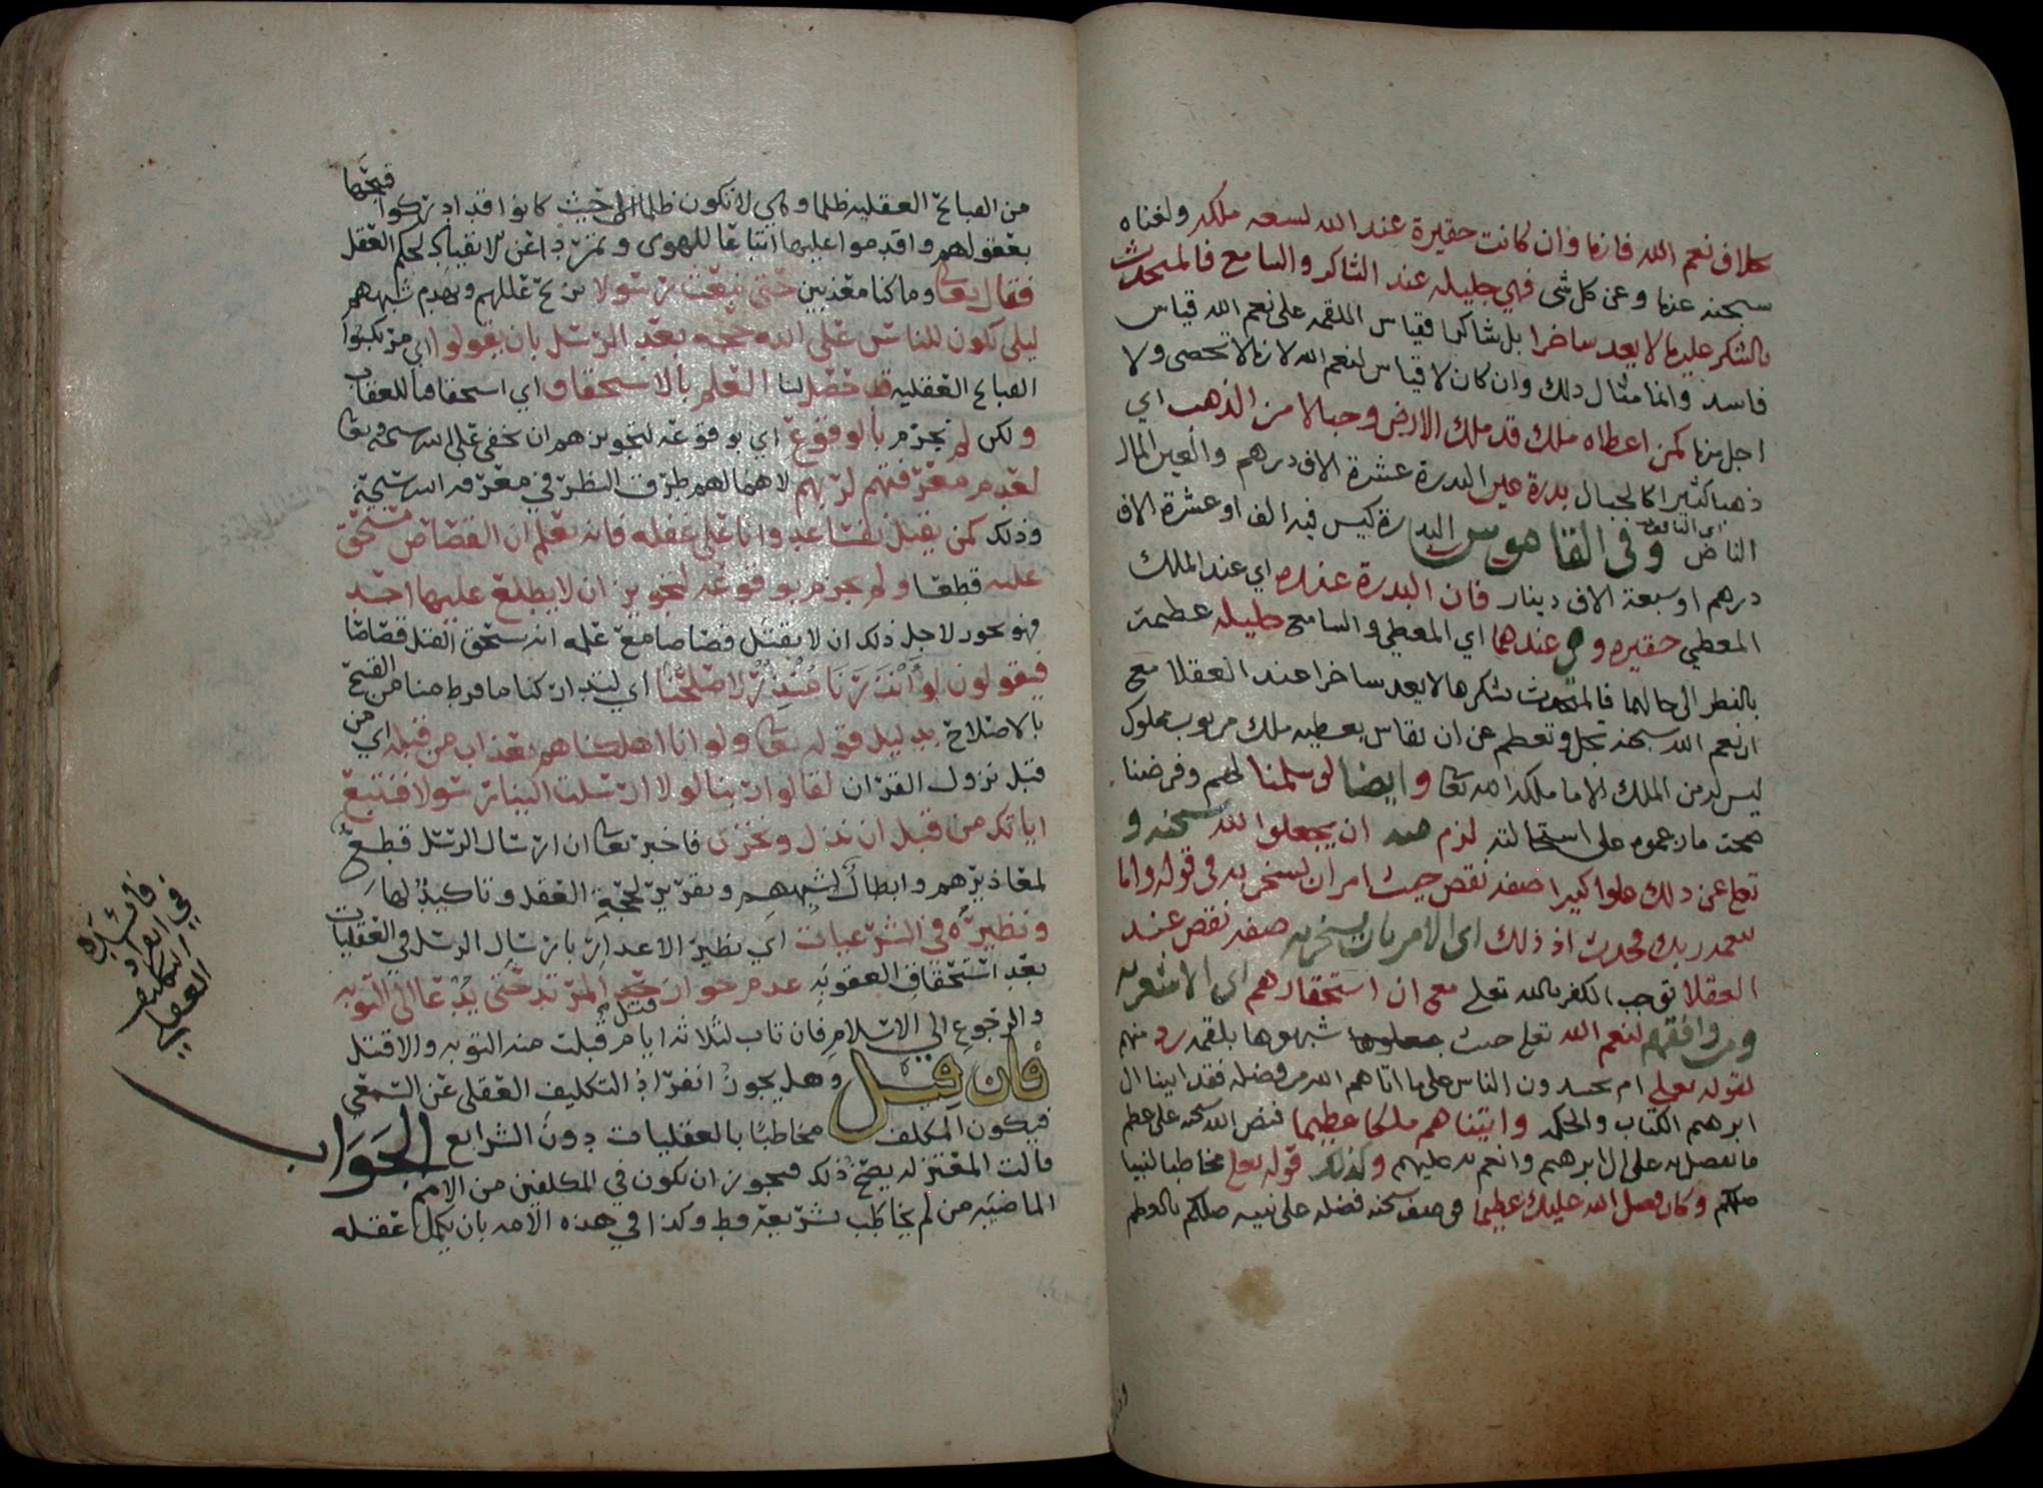 بخلاف نعم الله فانها وان كانت حقيرة عند الله لسعه ملكه ولغناه
سبحنه عنها وعن كل شى فهي جليله عند الشاكر والسامع فالمتحدث
بالشكر عليها لا يعد ساخرا بل شاكرا فقياس اللقمه على نعم الله قياس
فاسد وانما مثال ذلك وان كان لا قياس لنعم الله لانها لا تحصى ولا
اجل منها كمن اعطاه ملك قد ملك الارض وجبالا من الذهب اي
ذهبا كثيرا كالجبال بدرة عين البدرة عشرة الاف درهم والعين المال
الناض وفى القاموس البدرة كيس فيه الف او عشرة الاف
درهم او سبعة الاف دينار فان البدرة عنده اي عند الملك
المعطي حقيره وهي عندهما اي المعطي والسامع جليله عظيمة
بالنظر الى حالهما فالمتحدث بشكرها لا يعد ساخرا عند العقلا مع
ان نعم الله سبحنه تجل وتعظم عن ان تقاس بعطيه ملك مربوب مملوك
ليس له من الملك الا ما ملكه الله تعا وايضا لو سلمنا لهم وفرضنا
صحت ما زعموه على لزم منه ان يجعلوا لله سبحنه و
تعلى عن ذلك علوا كبيرا صفه نقص حيث امر ان يسخر به في قوله واما
بنعمه ربك فحدث اذ ذلك اى الامر بان يسخر به صفه نقص عند
العقلا توجب الكفر بالله تعلى مع ان استحقارهم اى الاشعريه
ومن وافقهم لنعم الله تعلى حيث شبهوها بلقمه رد منهم
لقوله تعلى ام يحسدون الناس على ما اتاهم الله من فضله فقد اتينا ال
ابرهيم الكتاب والحكمه واتيناهم ملكا عظيما فنص الله سبحنه على عظم
ما تفضل به على ال ابرهيم وانعم به عليهم وكذلك قوله تعلى مخاطبا لنبينا
صلعم وكان فضل الله عليك عظيما فوصف سبحنه فضله على نبيه صلعم بالعظم
من القبائح العقليه ظلما وهي لا تكون ظلما الا حيث كانوا قد ادركوا قبحها
بعقولهم واقدموا عليها اتباعا للهوى وتمردا عن الانقياد لحكم العقل
فقال تعا وما كنا معذبين حتى نبعث رسولا نزيح عللهم ونهدم شبههم
ليلى يكون للناس على الله حجه بعد الرسل بان يقولوا اي مرتكبوا
القبائح العقليه قد حصل لنا العلم بالاستحقاق اي استحقاقنا للعقاب
ولكن لم نجزم بالوقوع اي بوقوعه لتجويزهم ان يخفى على الله سبحنه وتعا
لعدم معرفتهم لربهم لاهمالهم طرق النظر في معرفه الله سبحنه
وذلك كمن يقتل نفسا عدوانا على غفله فانه يعلم ان القصاص مستحق
عليه قطعا ولم يجزم بوقوعه لتجويز ان لا يطلع عليهما احد
فهو يجوز لاجل ذلك ان لا يقتل قصاصا مع علمه انه يستحق القتل قصاصا
فيقولون لو انذرنا منذر لاصلحنا اي لتداركنا ما فرط منا من القبيح
بالاصلاح بدليل قوله تعا ولو انا اهلكناهم بعذاب من قبله اي من
قبل نزول القران لقالوا ربنا لولا ارسلت الينا رسولا فنتبع
اياتك من قبل ان نذل ونخزى فاخبر تعا ان ارسال الرسل قطع
لمعاذيرهم وابطال لشبههم وتقرير لحجة العقل وتاكيد لها
ونظيره في الشرعيات اي نظير الاعذار بارسال الرسل في العقليات
بعد استحقاق العقوبه عدم جواز قتل المرتد حتى يدعا الى التوبه
والرجوع الى الاسلام فان تاب لثلاثه ايام قبلت منه التوبه والا قتل
فان قيل وهل يجوز انفراد التكليف العقلى عن السمعي
فيكون المكلف مخاطبا بالعقليات دون الشرايع الجواب
قالت المعتزله يصح ذلك فيجوز ان يكون في المكلفين من الامم
الماضيه من لم يخاطب بشريعة قط وكذا في هذه الامه بان يكمل عقله
فائده
في انفراد
التكليف
العقلي